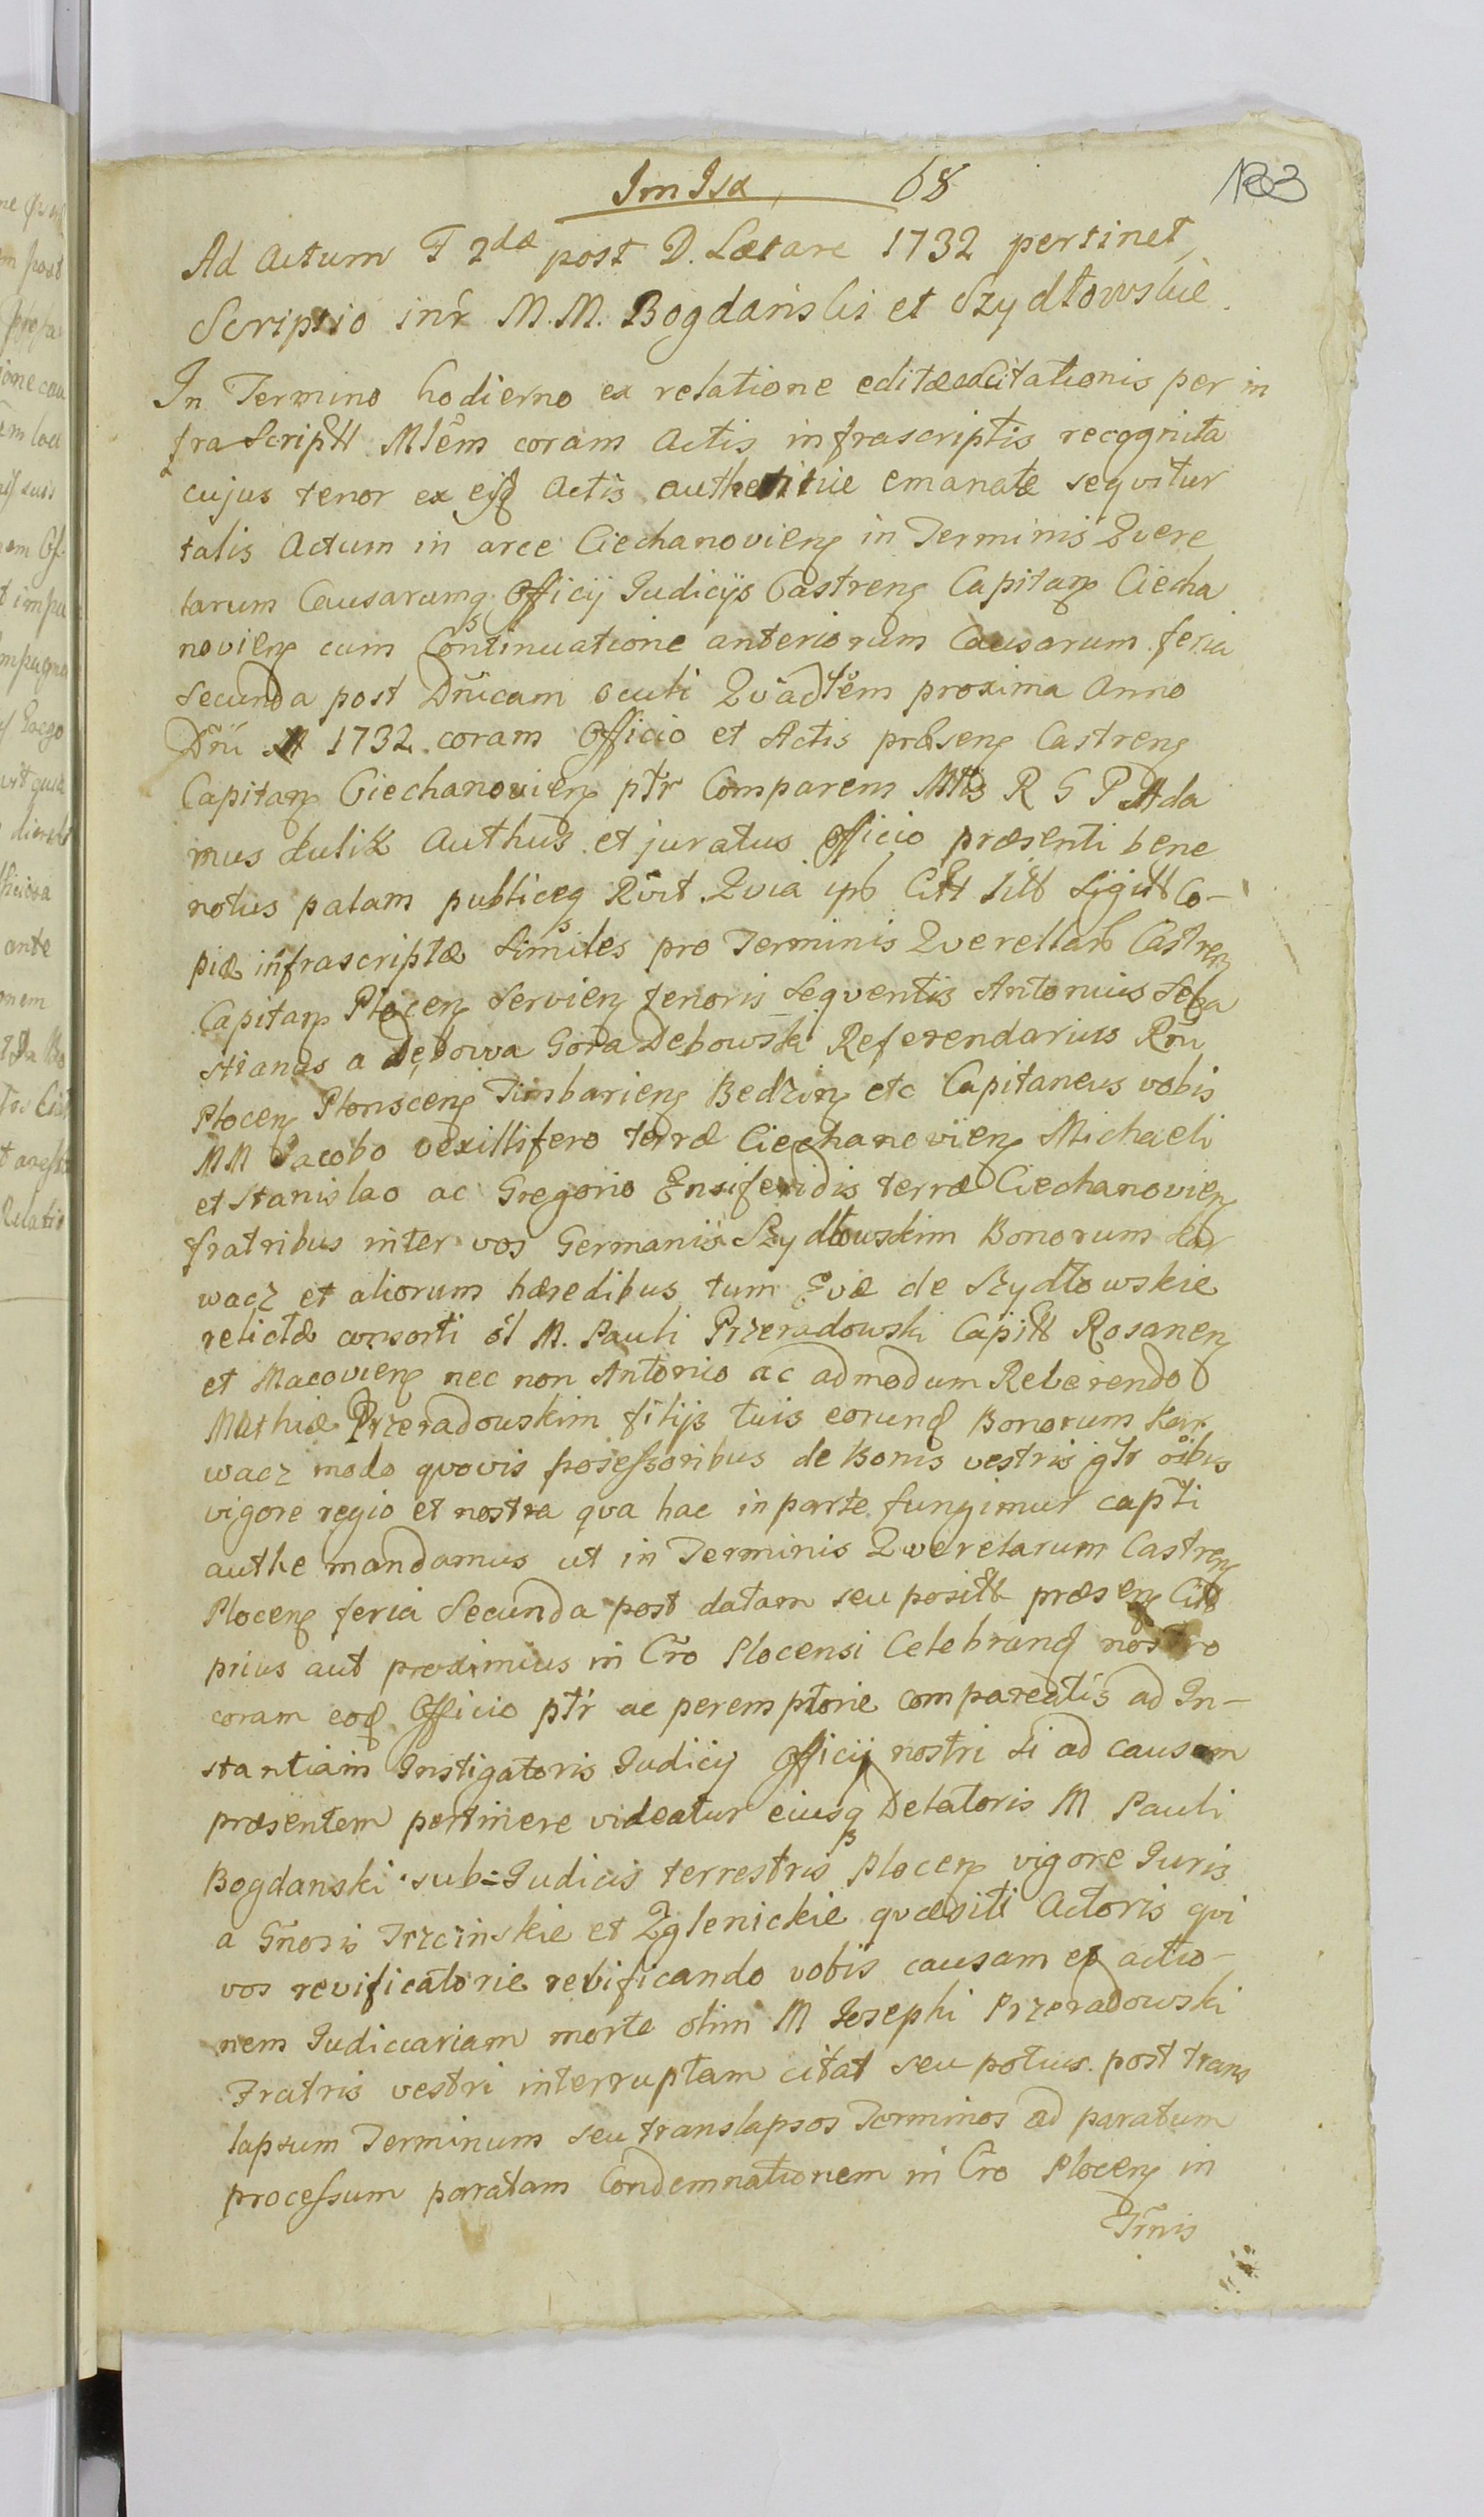 Im Isa 68
Ad Actum F 2dæ post D. Lætare 1732 pertinet
Scriptio inr M. M. Bogdański et Szydłowskie
In Termino hodierno ex relatione editæ Citationis per in
fra Scriptt Mlem coram Actis infrascriptis recognita
cujus tenor ex eisd Actis authentiue emanatæ seqvitur
talis Actum in arce Ciechanovien in Terminis Qvere
larum Causarumq Officij Judicijs Castren Capitan Ciecha
novien cum Continuatione anteriorum Causarum feria
Secunda post Dnicam oculi proxima Anno
Dni M 1732 coram Officio et Actis præsen Castren
Capitan Ciechanovien ptr Comparens Mtis R G P Ada
mus Kulik Authus et juratus Officio præsenti bene
notus palam publiceq Rvit Qvia ipse Citt litt Sigitt Co-
piæ infrascriptæ Similes pro Terminis Qverellarb Castren
Capitan Plocen Servien tenoris Seqventis Antonius Seba
stianus a dębowa Gora Debowski Referendarius Rni
Plocen Plonscen Timbarien Bedzin etc Capitaneus vobis
MM Jacobo vexillifero terræ Ciechanovien Michaeli
et Stanislao ac Gregorio Ensiferidis terræ Ciechanovien
fratribus inter vos Germanis Szydłowskim Bonorum Kar
wacz et aliorum hæredibus tum Evæ de Szydłowskie
relictæ consorti ol M. Pauli Przeradowski Capitt Rosanen
et Macovien nec non Antonio ac admodum Reverendo
Mathiæ Przeradouskim filijs tuis eorund Bonorum Kar
wacz modo qvovis posessoribus de Bonis vestris gtr oibus
vigore regio et nostra qva hac in parte fungimur capti
authe mandamus ut in Terminis Qverelarum Castren
Plocen feria Secunda post datam seu positt præsen Citt
prius aut proximius in Cro Plocensi Celebrand nostro
coram eod Officio ptr ac peremptorie compareatis ad In-
stantiam Instigatoris Judicij Officij nostri Si ad causam
præsentem pertinere videatur eiusq Delatoris M Pauli
Bogdanski sub=Judicis terrestris Plocen vigore Juris
a Gnosis Trzcinskie et Zglenickie qvæsiti Actoris qvi
vos revificatorie revificando vobis causam et actio-
nem Judiciariam morte olim M Josephi Przeradowski
Fratris vestri interruptam citat seu potius post trans
lapsum Terminum seu translapsos Terminos ad paratum
processum paratam Condemnationem in Cro Plocen in
Trnis